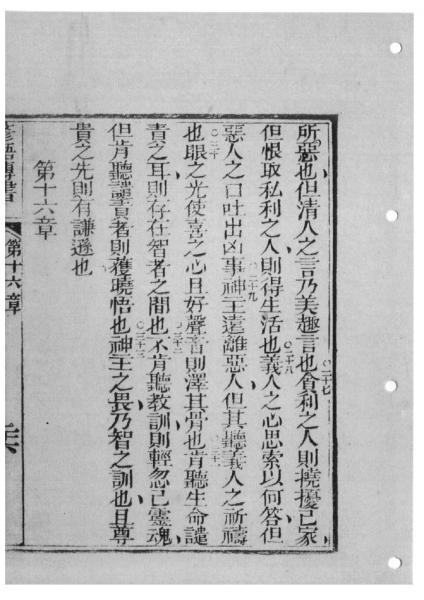 所惡也但清人之言乃美趣言也〇二十七貪利之人則撓擾己家
但恨取私利之人則得生活也〇二十八義人之心思索以何答但
惡人之口吐出凶事〇二十九神主遠離惡人但其聽義人之祈禱
也〇三十眼之光使喜之心且好聲音則澤其骨也〇三十一肯聽生命譴
責之耳則存在智者之間也〇三十二不肯聽教訓則輕忽己靈魂
但肯聽譴責者則獲曉悟也〇三十三神主之畏乃智之訓也且尊
貴之先則有謙遜也
第十六章
第十六章